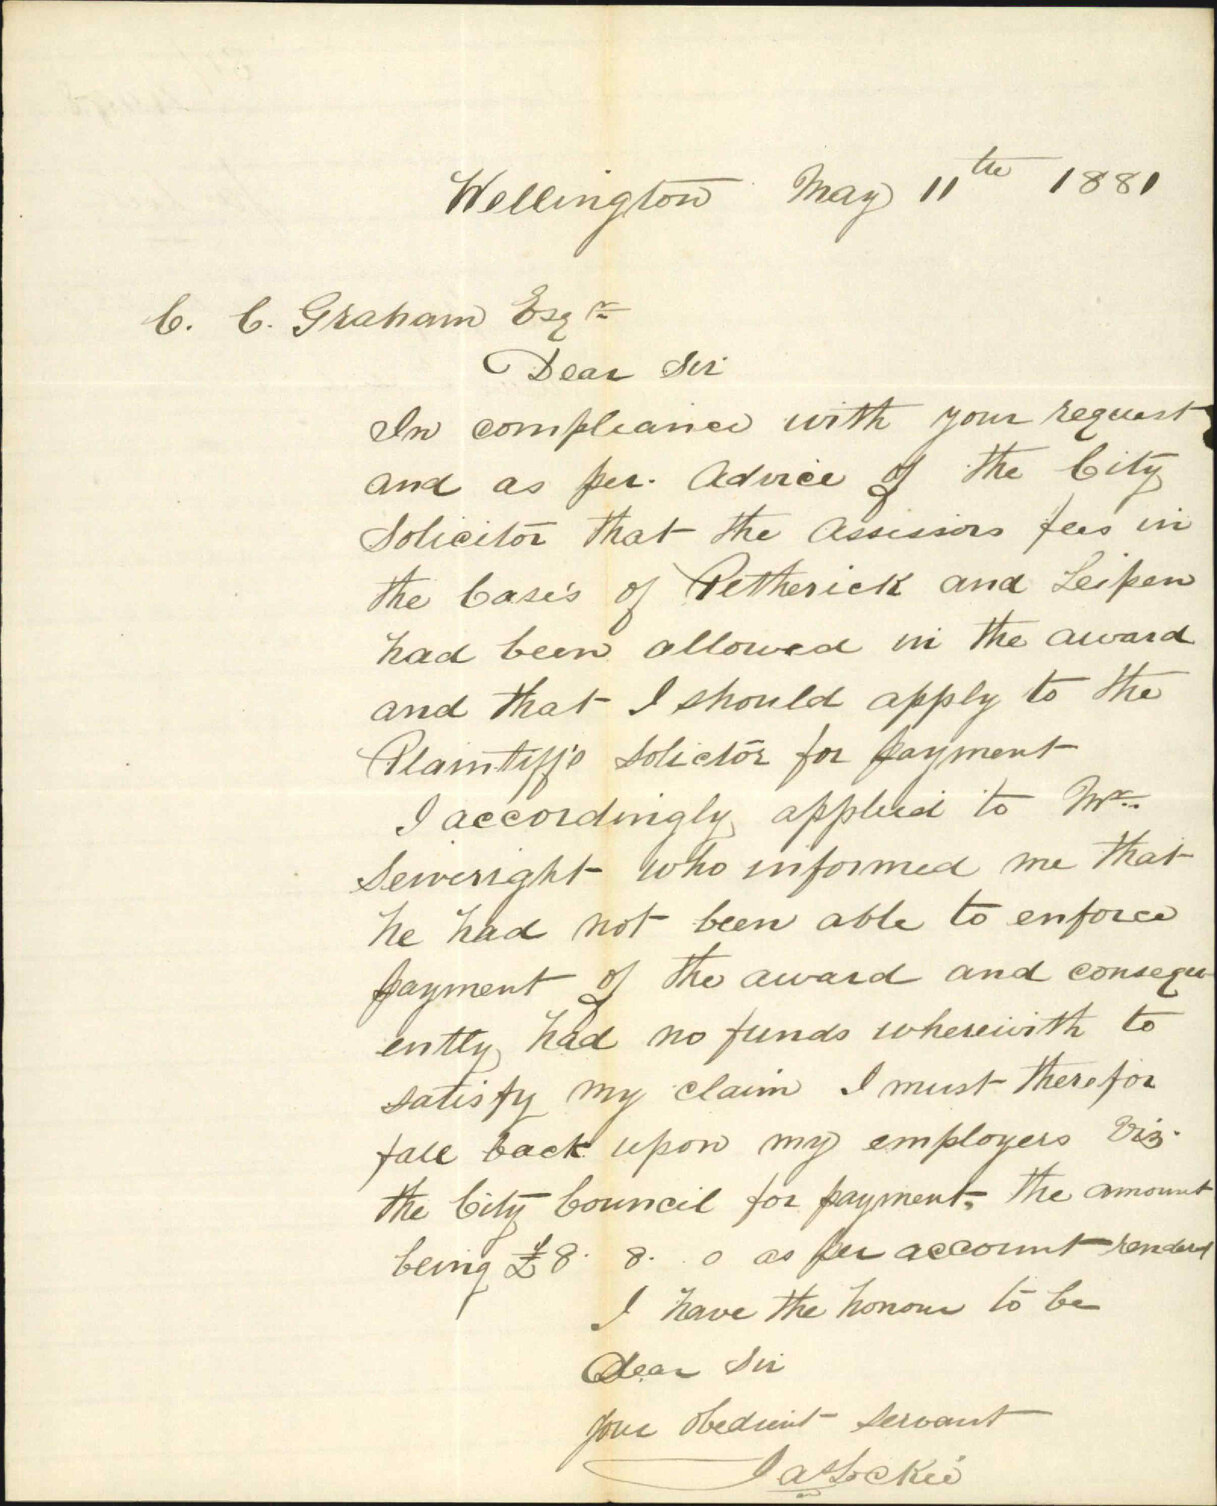 Wellington May 11th 1881
C. C. Graham Esqr
Dear Sir
In compliance with your request
and as per. Advice of the City
Solicitor that the Assessors fees in
the Case's of Petherick and Leipen
had been allowed in the award
and that I should apply to the
Plaintiff's Solictor for payment
I accordingly applied to Mr.
Seiveright who informed me that
he had not been able to enforce
payment of the award and consequ-
ently had no funds wherewith to
satisfy my claim I must therefor
fall back upon my employers Viz.
the City Council for payment, the amount
being £8. 8. 0 as per account renderd
I have the honour to be
Dear Sir
your obedient servant
Jas Lockie